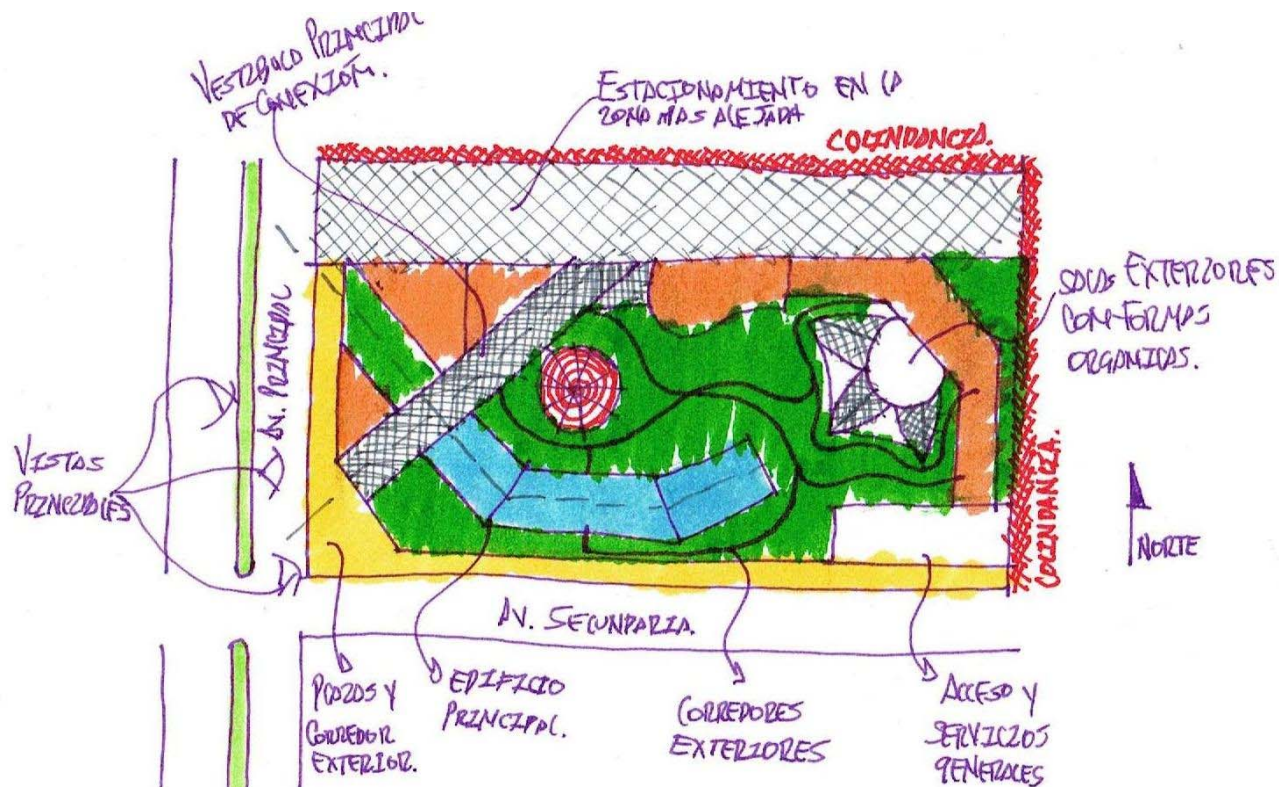 VESTIBULO PRINCIPAL
DE CONEXIÓN.
ESTACIONAMIENTO EN LA
ZONA MAS ALEJADA
COLINDANCIA.
SALAS EXTERIORES
CON FORMAS
ORGANICAS.
AV. PRINCIPAL
VISTAS
PRINCIPALES
COLINDANZIA.
NORTE
AV. SECUNDARIA.
PLAZAS Y
CORREDOR
EXTERIOR.
EDIFICIO
PRINCIPAL.
CORREDORES
EXTERIORES
ACCESO Y
SERVICIOS
GENERALES